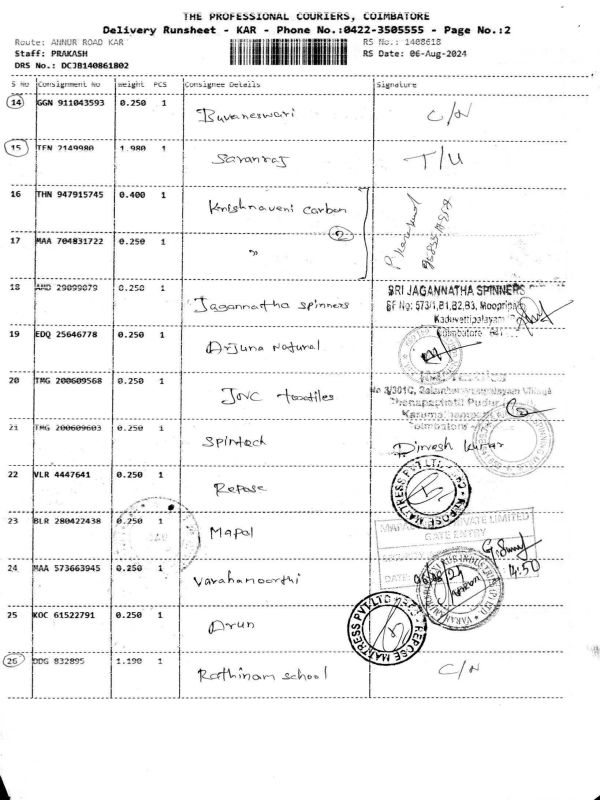 THE PROFESSIONAL COURIERS, COIMBATORE
Delivery Runsheet - KAR - Phone No.:0422-3505555 - Page No.:2
Route: ANNUR ROAD KAR RS No.: 1408618
Staff: PRAKASH RS Date: 06-Aug-2024
DRS No.: DCJB140861802
S No Consignment No Weight PCS Consignee Details Signature
14 GGN 911043593 0.250 1 Buvaneswari C/N
15 TEN 2149980 1.980 1 Saranraj T/U
16 THN 947915745 0.400 1 Krishnaveni Carbon
2
17 MAA 704831722 0.250 1 "
18 AMD 29099879 0.250 1 Jagannatha spinners SRI JAGANNATHA SPINNERS
SF No: 573/1,B1,B2,B3,
Kaduvettipalayam
Coimbatore
19 EDQ 25646778 0.250 1 Arjuna Natural
20 TMG 200609568 0.250 1 JVC textiles
21 TMG 200609603 0.250 1 Spintech Dinesh Kumar
22 VLR 4447641 0.250 1 Repose
REPOSE MATTRESS PVT LTD
23 BLR 280422438 0.250 1 Mapol
PRIVATE LIMITED
GATE ENTRY
24 MAA 573663945 0.250 1 Varahamoorthi
DATE 06/08/24 14.50
25 KOC 61522791 0.250 1 Arun
REPOSE MATTRESS PVT LTD
26 DDG 832895 1.190 1 Rathinam school C/N